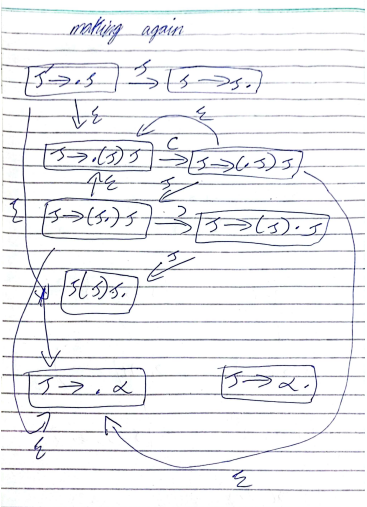 making again
S → .S   S   S → S.
ε   ε
S → .(S) S   C   S → (.S) S
ε   S
ε   S → (S.) S   )   S → (S) . S
S(S)S.   S
S → . α   S → α .
ε
ε